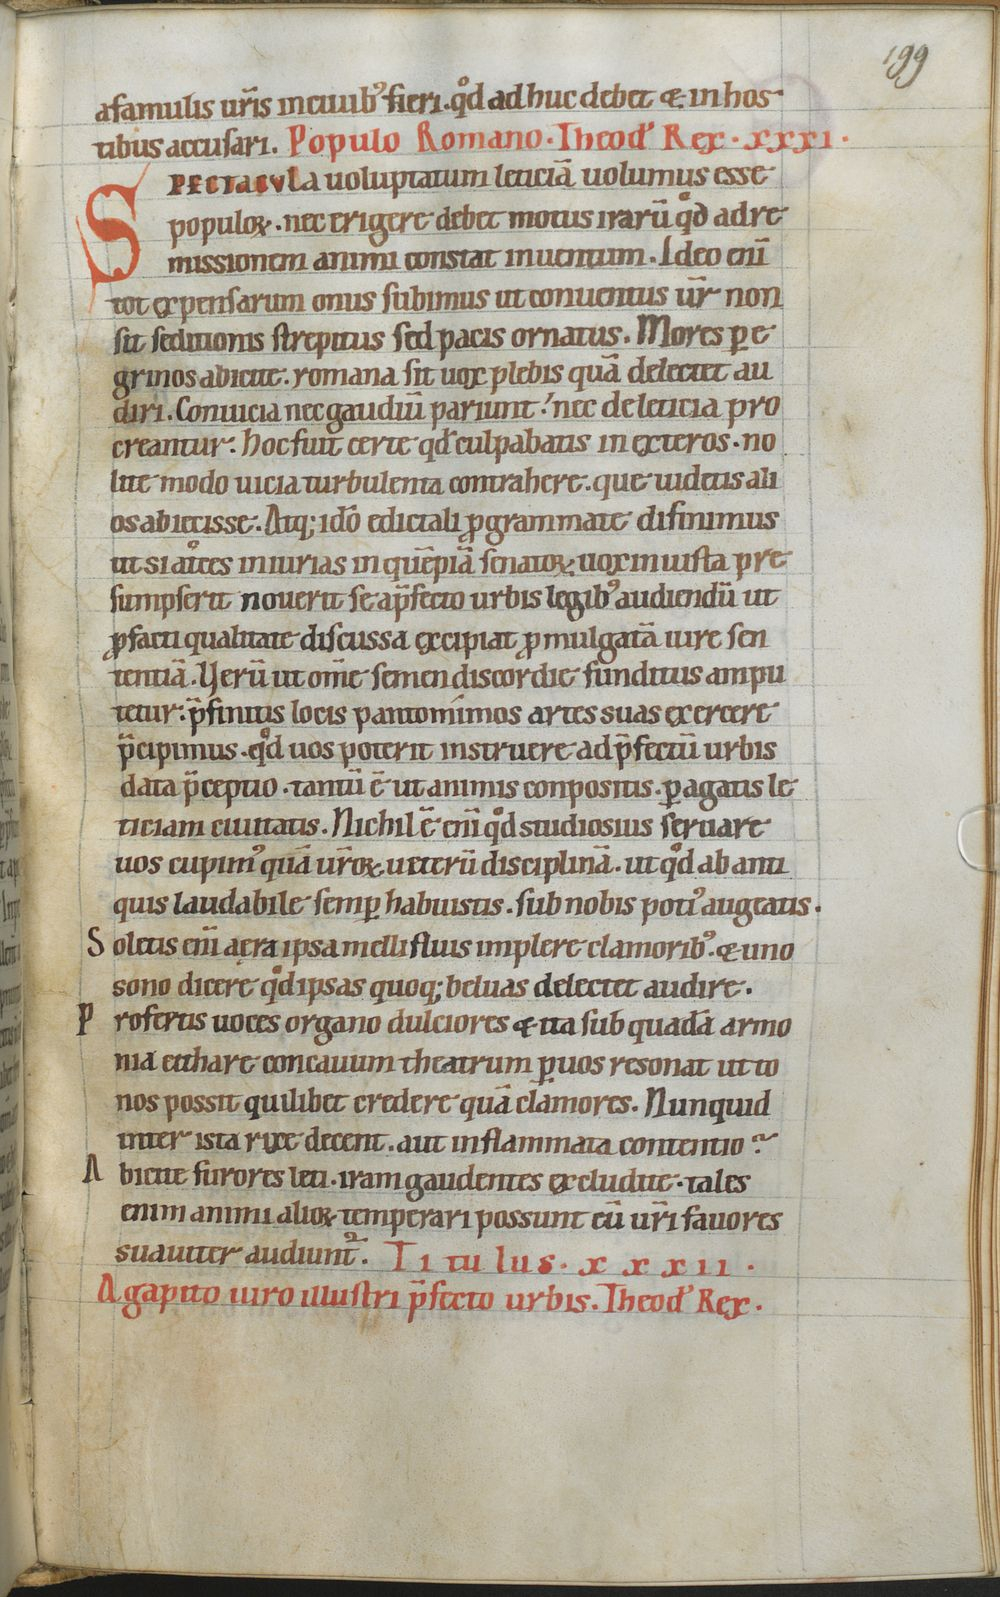 199
a famulis ur̄is in ciuib᾽ fieri. qd̊ adhuc debet & in hos
tibus accusari. Populo Romano. Theod᾽ Rex. xxxi.
SPECTACULa uoluptatum leticiā uolumus esse
populoꝝ. nec erigere debet motus irarū qd̊ ad re
missionem animi constat inuentum. Ideo eni̅
tot expensarum onus subimus ut conuentus ur̄ non
sit seditionis strepitus sed pacis ornatus. Mores ꝑe
grinos abicite. romana sit uox plebis quā delectet au
diri. Conuicia nec gaudiū pariunt.᾽ nec de leticia pro
creantur. hoc fuit certe qd᾽ culpabatis in exteros. no
lite modo uicia turbulenta contrahere. que uidetis ali
os abiecisse. Atq; idō edictali ꝓgrammate difinimus
ut si at̊ces iniurias in quēpiā senatoꝝ uox iniusta pre
sumpserit nouerit se a p̄fecto urbis legib᾽ audiendū ut
ꝓ facti qualitate discussa excipiat ꝓmulgatā iure sen
tentiā. Verū ut om̄e semen discordie funditus ampu
tetur. p̄finitis locis pantomimos artes suas exercere
p̄cipimus. qd̊ uos poterit instruere ad p̄fectū urbis
data p̄ceptio. tantū ē ut animis conpositis. ꝑagatis le
ticiam ciuitatis. Nichil ē eni̅ qd̊ studiosius seruare
uos cupim᾽ quā ur̄oꝝ ueterū disciplinā. ut qd̊ ab anti
quis laudabile semꝑ habuistis. sub nobis poti᾽ augeatis.
Soletis eni̅ aera ipsa mellifluis implere clamorib᾽. & uno
sono dicere qd̊ ipsas quoq; beluas delectet audire.
Profertis uoces organo dulciores & ita sub quadā armo
nia cithare concauum theatrum ꝑ uos resonat ut to
nos possit quilibet credere quā clamores. Nunquid
inter ista rixe decent. aut inflammata contentio?
Abicite furores leti. iram gaudentes excludite. tales
enim animi alioꝝ temperari possunt cū ur̄i fauores
suauiter audiunt᾽. Titulus. xxxii.
Agapito uiro illustri p̄fecto urbis. Theod᾽ Rex.